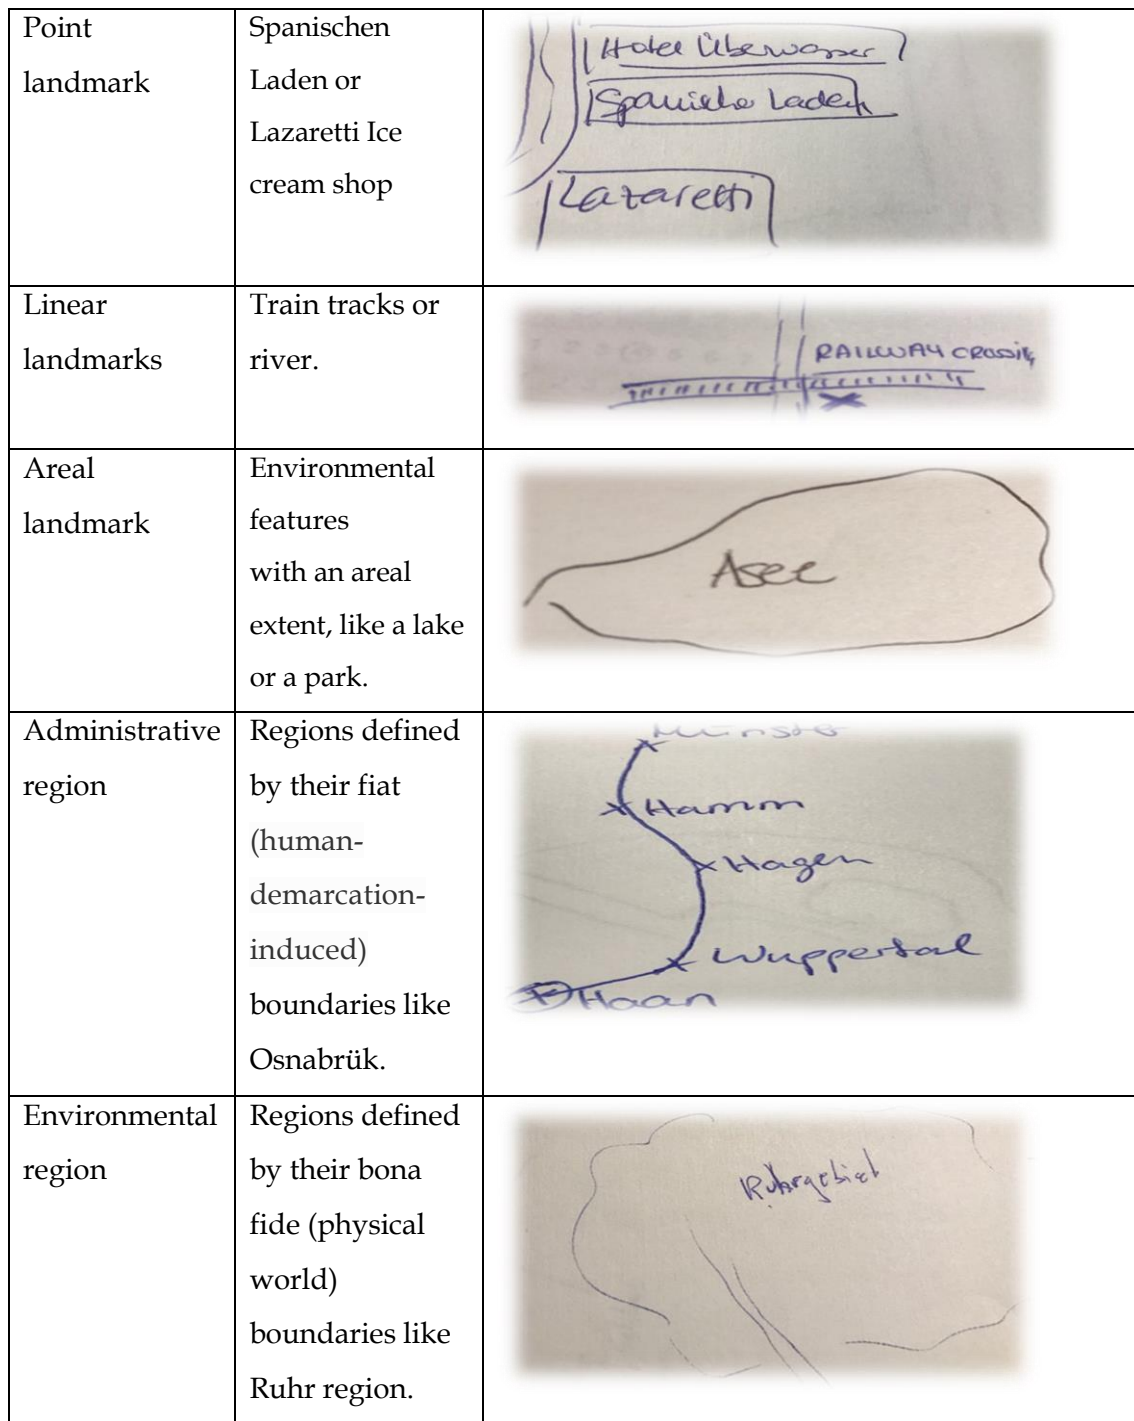 Point
landmark
Spanischen
Laden or
Lazaretti Ice
cream shop
Hotel Überwasser
Spanische Laden
Lazaretti
Linear
landmarks
Train tracks or
river.
RAILWAY CROSSING
Areal
landmark
Environmental
features
with an areal
extent, like a lake
or a park.
Asee
Administrative
region
Regions defined
by their fiat
(human-
demarcation-
induced)
boundaries like
Osnabrük.
Münster
Hamm
Hagen
Wuppertal
Haan
Environmental
region
Regions defined
by their bona
fide (physical
world)
boundaries like
Ruhr region.
Ruhrgebiet